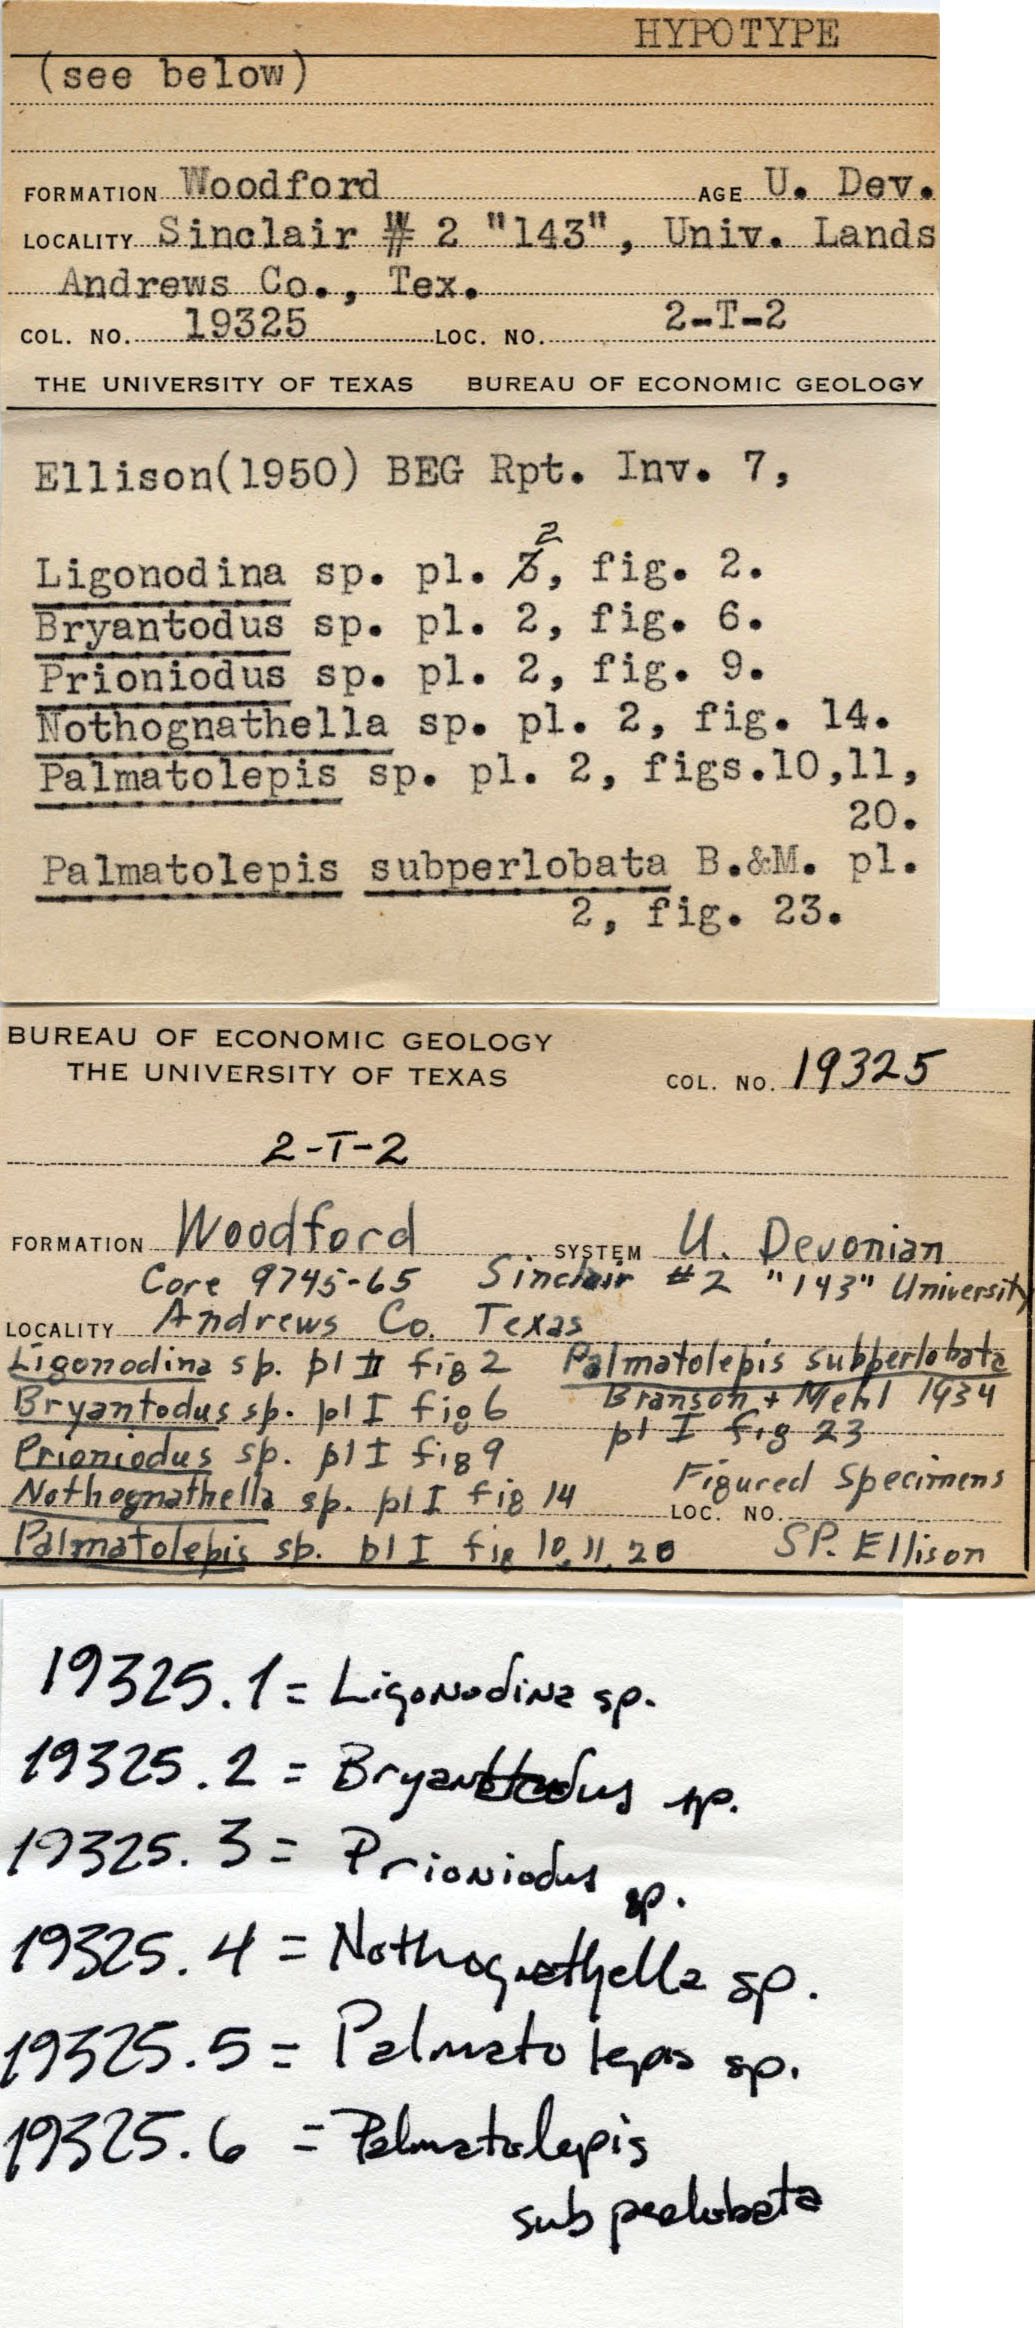 HYPOTYPE
(see below)
FORMATION Woodford AGE U. Dev.
LOCALITY Sinclair # 2 "143", Univ. Lands
Andrews Co., Tex.
COL. NO. 19325 LOC. NO. 2-T-2
THE UNIVERSITY OF TEXAS BUREAU OF ECONOMIC GEOLOGY
Ellison(1950) BEG Rpt. Inv. 7,
2
Ligonodina sp. pl. 3, fig. 2.
Bryantodus sp. pl. 2, fig. 6.
Prioniodus sp. pl. 2, fig. 9.
Nothognathella sp. pl. 2, fig. 14.
Palmatolepis sp. pl. 2, figs.10,11,
20.
Palmatolepis subperlobata B.&M. pl.
2, fig. 23.
BUREAU OF ECONOMIC GEOLOGY
THE UNIVERSITY OF TEXAS COL. NO. 19325
2-T-2
FORMATION Woodford SYSTEM U. Devonian
Core 9745-65 Sinclair #2 "143" University
LOCALITY Andrews Co. Texas
Ligonodina sp. pl II fig 2 Palmatolepis subperlobata
Bryantodus sp. pl I fig 6 Branson + Mehl 1934
pl I fig 23
Prioniodus sp. pl I fig 9
Figured Specimens
Nothognathella sp. pl I fig 14 LOC. NO.
Palmatolepis sp. pl I fig 10, 11, 20 SP. Ellison
19325.1 = Ligonodina sp.
19325.2 = Bryantodus sp.
19325.3 = Prioniodus sp.
19325.4 = Nothognathella sp.
19325.5 = Palmatolepis sp.
19325.6 = Palmatolepis
subperlobata